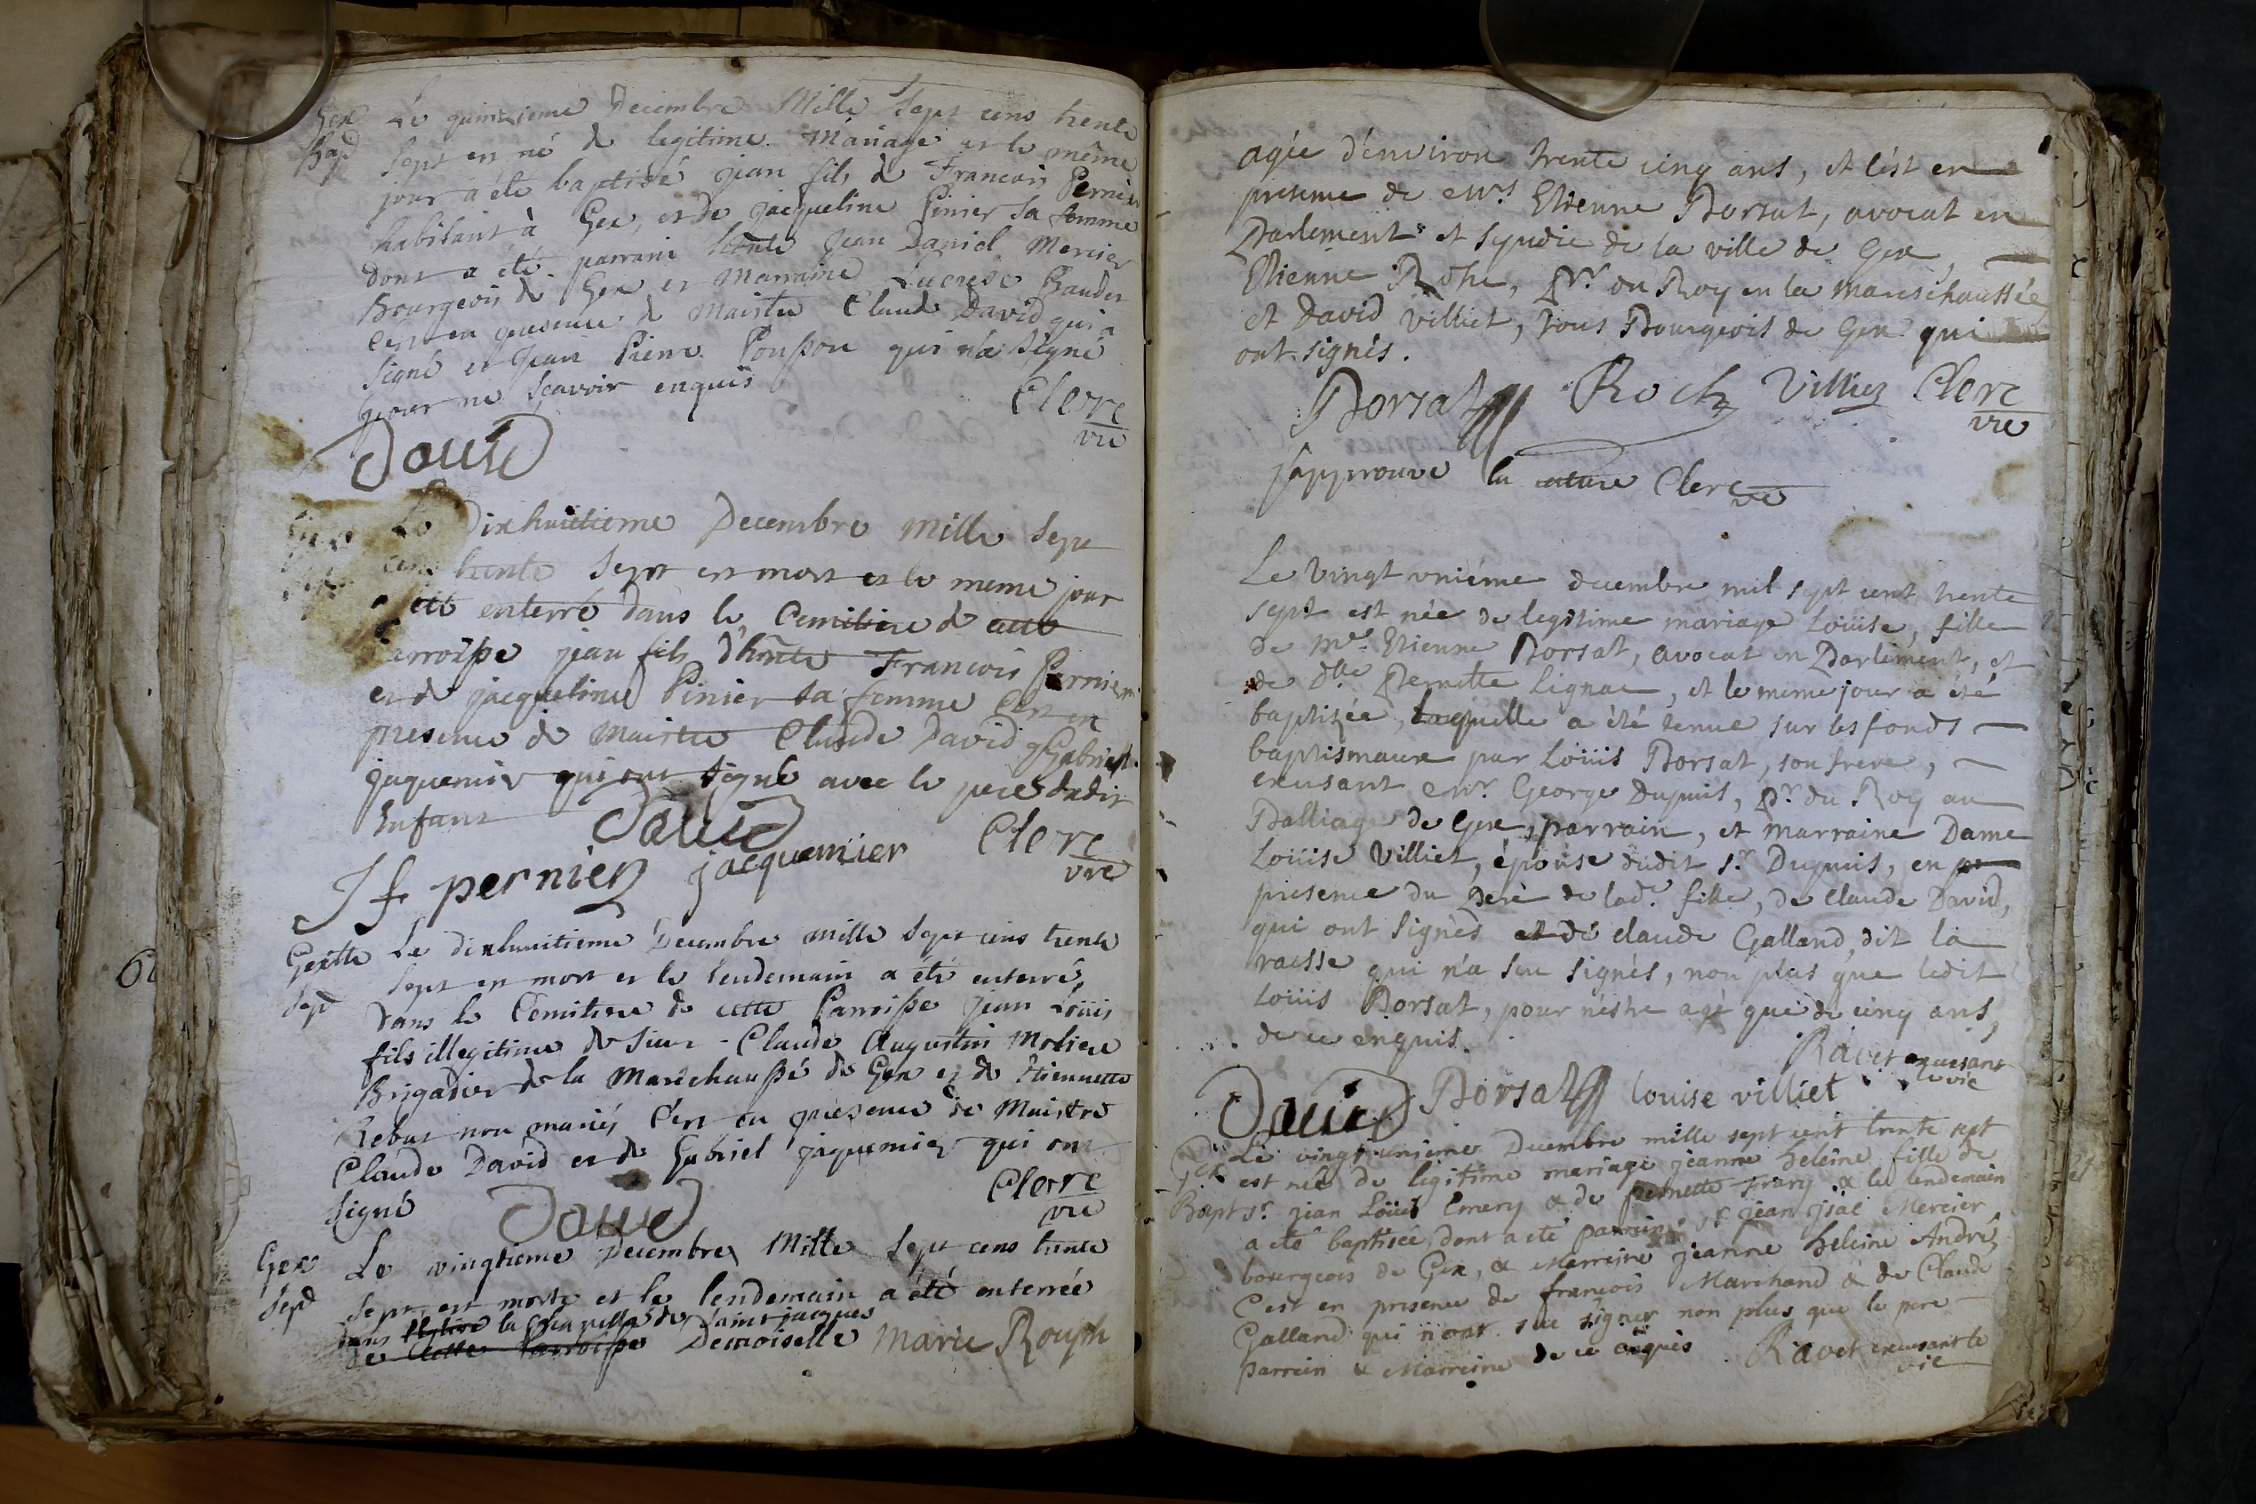 Gex Le quinzieme Decembre Mille Sept cens trente
Bap Sept est né de legitime Mariage et le même
jour a été baptisé jean fils de Francois Pernier
habitant à Gex, et de jacqueline Pinier sa femme
dont a été parrain honte Jean Daniel Mercier
Bourgeois de Gex et Marraine Lucresse Baudet
C'est en presence de Maistre Claude David qui a
signé et Jean Pierre Ponsson qui n'a signé
pour ne sçavoir enquis
Clerc
vre
David
Gex Le Dixhuitieme Decembre Mille Sept
cens trente Sept est mort et le meme jour
a été enterré dans le Cemitiere de cette
parroisse jean fils d'honte Francois Pernier
et de jacqueline Pinier sa femme C'est en
presence de Maistre Claude David & Gabriel
jaquemier qui ont signé avec le pere dudit
Enfant
David
Clerc
vre
Jf pernier jacquemier
Gex Le dixhuitieme Decembre Mille Sept cens trente
Sep Sept est mort et le lendemain a été enterré
dans le Cemitiere de cette Parroisse Jean Loüis
fils illegitime de Sieur Claude Augustin Moliere
Brigadier de la Marechaussé de Gex et de Etiennette
Rebut non mariés C'est en presence de Maistre
Claude David et de Gabriel jaquemier qui ont
signé
David
Clerc
vre
Gex Le vingtieme Decembre Mille Sept cens trente
Sep Sept est morte et le lendemain a été enterrée
dans l'Eglise la Chapelle de Saint jacques
de cette Parroisse Demoiselle Marie Rouph
agée d'environ trente cinq ans, et c'est en
presence de Mrs Etienne Borsat, avocat en
Parlement et syndic de la ville de Gex,
Etienne Roch, Pr. du Roy en la Maréchaussée
et David Villiet, tous Bourgeois de Gex qui
ont signés.
Borsat Roch Villiez Clerc
vre
J'approuve la rature Clerc vre
Le vingt unième decembre mil sept cent trente
sept est née de legitime mariage Loüise, fille
de Me. Etienne Borsat, avocat en Parlement, et
de Dlle Pernette Lignac, et le meme jour a été
baptizée, laquelle a été tenue sur les fonds
baptismaux par Loüis Borsat, son frere,
excusant Mr. George Dupuis, Pr. du Roy au
Balliage de Gex, parrain, et marraine Dame
Loüise Villiet, épouse dudit Sr. Dupuis, en
presence du Pere de lad. fille, de Claude David,
qui ont signés et de claude Galland, dit la
raisse qui n'a sçu signés, non plus que ledit
Loüis Borsat, pour n'estre agé que de cinq ans,
de ce enquis.
Ravet excusant
le vic
David Borsat louise villiet
Gex Le vingt unieme Decembre mille sept cent trente sept
est née de legitime mariage jeanne heleine fille de
Bapt Sr. jean Loüis Emery & de Pernette Frary & le lendemain
a eté baptisée, dont a eté parrein Sr jean jsac Mercier
bourgeois de Gex, & Marreine jeanne heleine André
C'est en presence de françois Marchand & de Claude
Galland qui n'ont sçu signer non plus que le pere
parrein & Marreine de ce enquis Ravet excusant le
vic